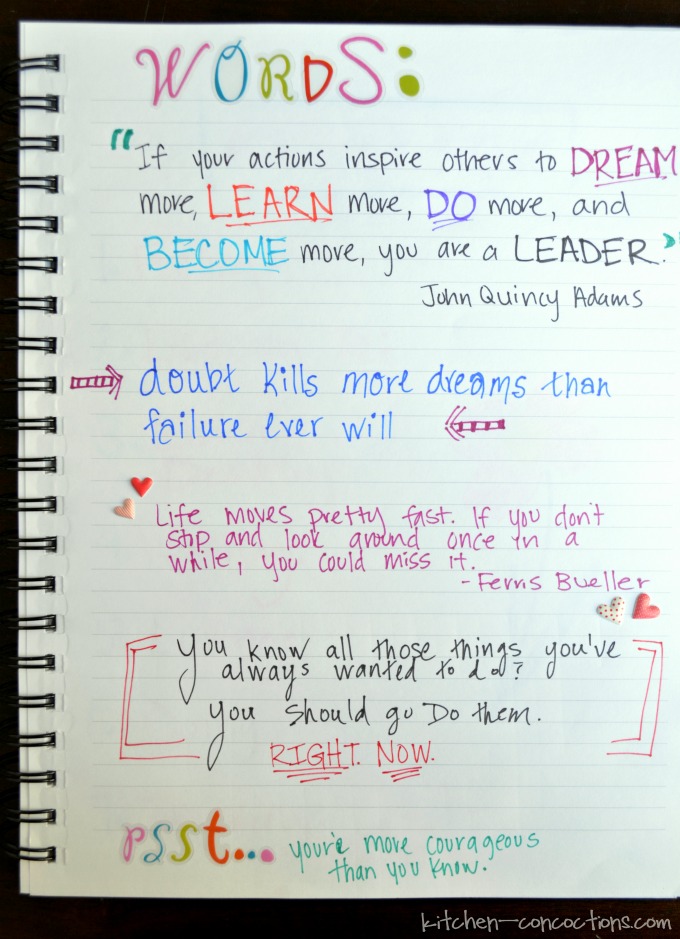 WORDS:
"If your actions inspire others to DREAM
more, LEARN more, DO more, and
BECOME more, you are a LEADER."
John Quincy Adams
doubt kills more dreams than
failure ever will
Life moves pretty fast. If you don't
stop and look around once in a
while, you could miss it.
- Ferris Bueller
You know all those things you've
always wanted to do?
you should go Do them.
RIGHT. NOW.
psst... you're more courageous
than you know.
kitchen-concoctions.com